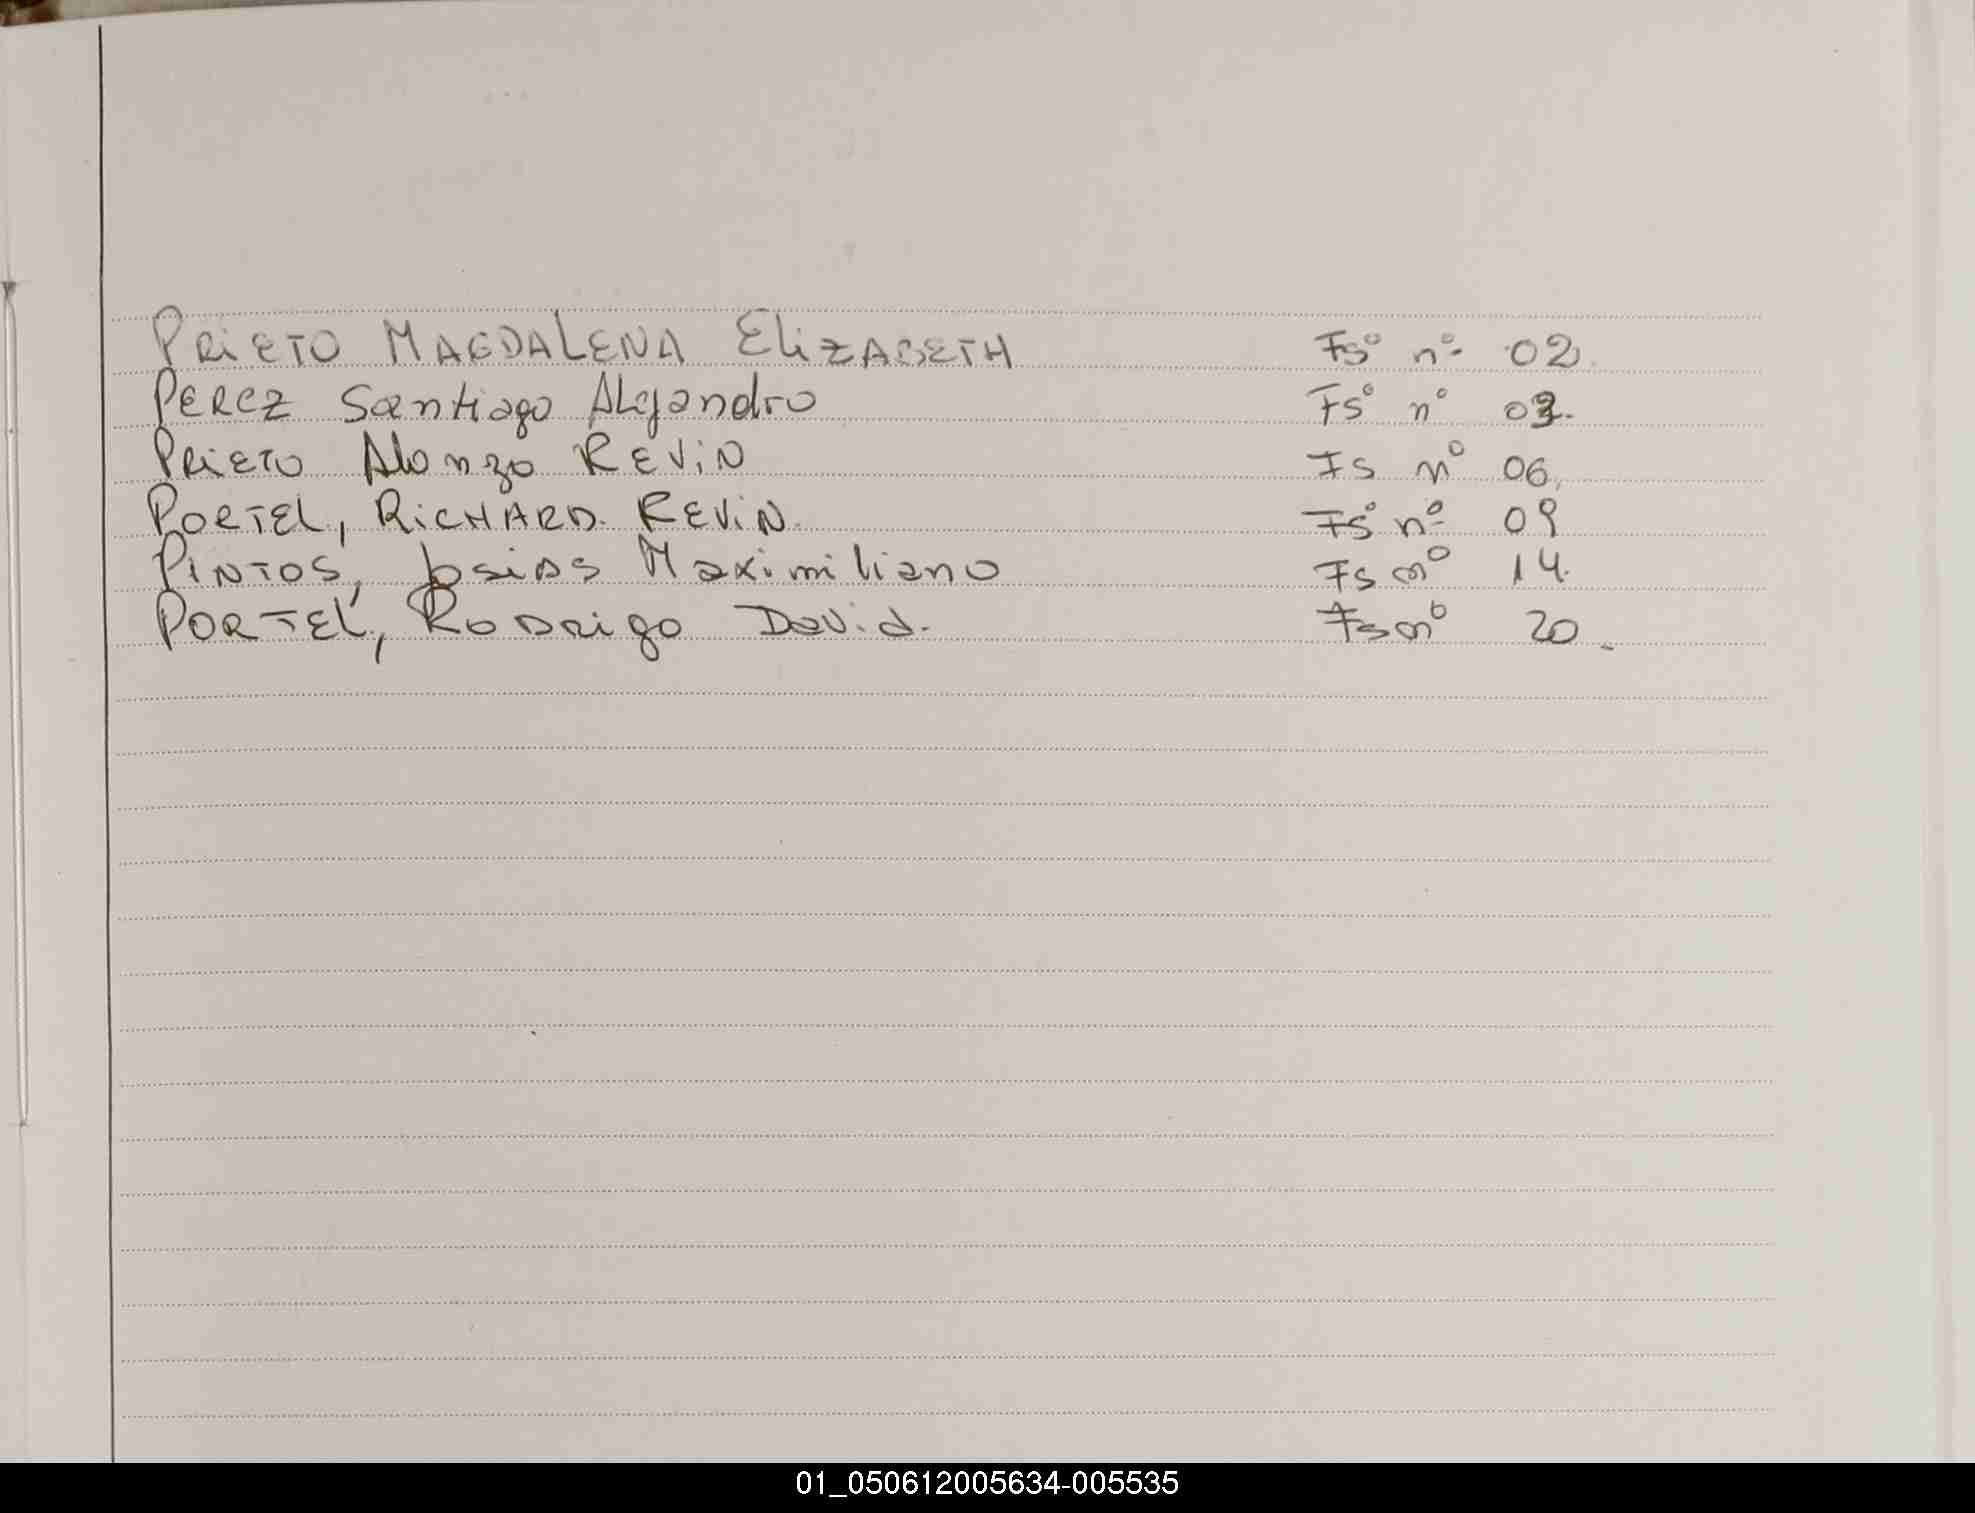 PRiETO MAGDALENA EliZABETH Fsº nº 02.
PEREZ Santiago Alejandro Fsº nº 03.
PRiETO Alonzo KEViN Fs nº 06.
PORTEL, RiCHARD. KEViN. Fsº nº 09
PINTOS, Josias Maximiliano Fs nº 14.
PORTEL, Rodrigo David. Fs nº 20.
01_050612005634-005535